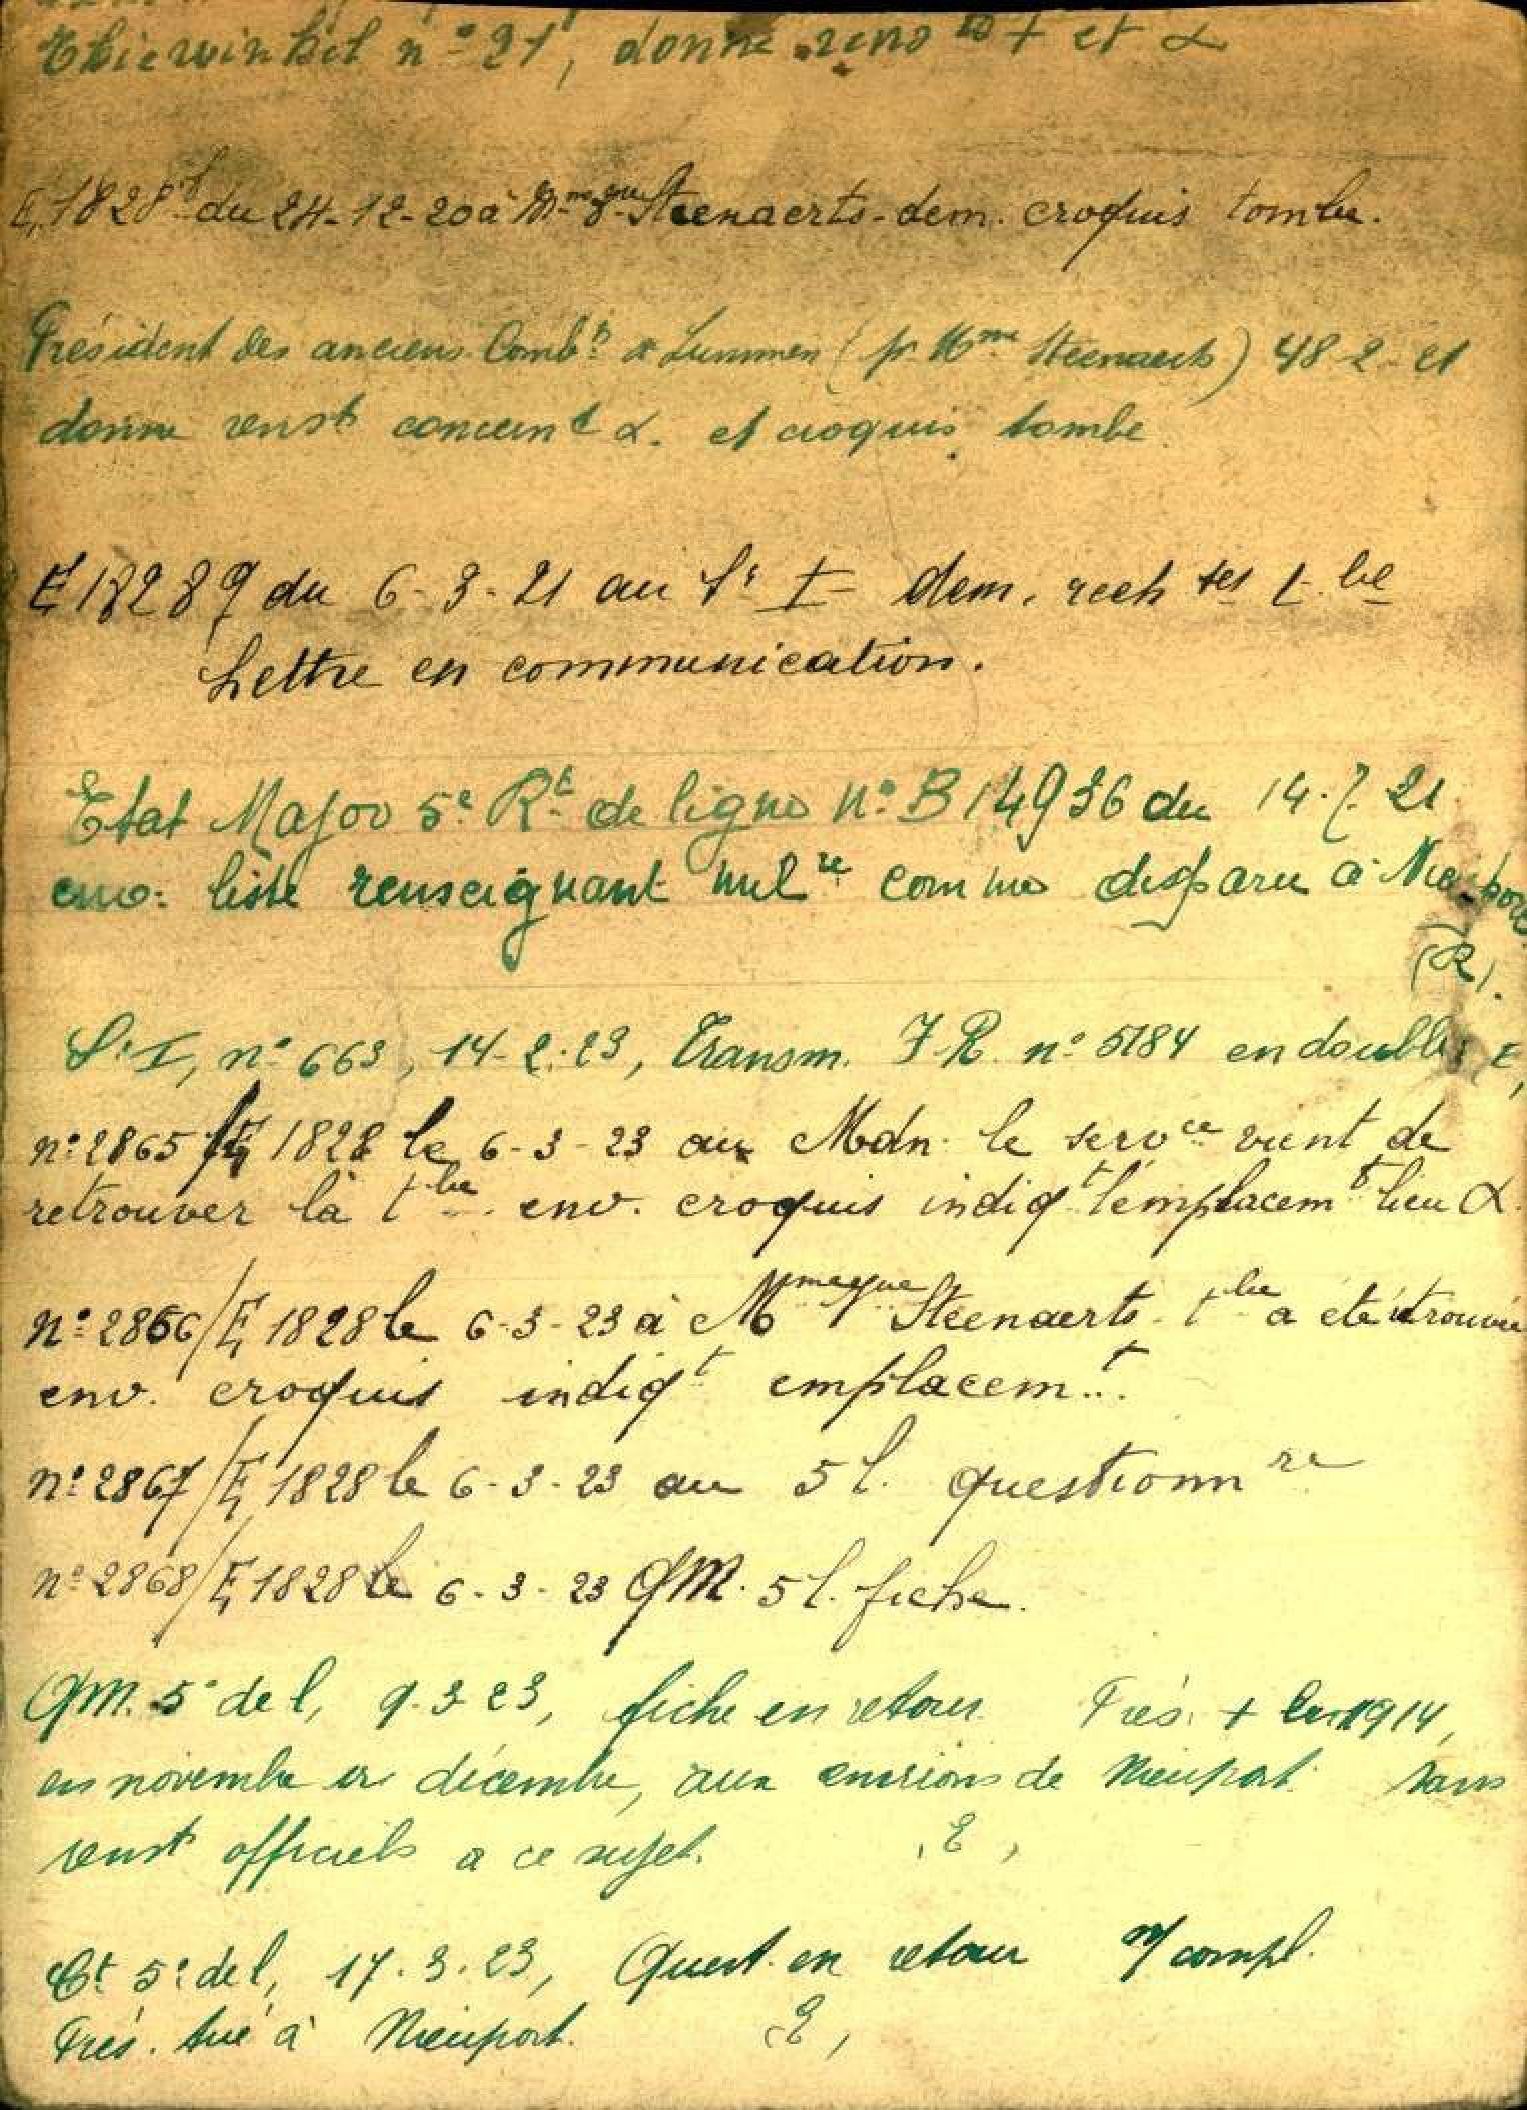 Thiewinkel n° 21, donne rens ts + et α
E 1828 du 24-12-20 à Mme Steenaerts - dem. croquis tombe.
Président des anciens Combts Lummen (pr Mme Steenaerts) 2-21
donne renst concernt α. et croquis tombe
du 6-3-21 au S. I dem. rech tes t.be
Lettre en communication.
Etat Major 5e Rt de ligne n° B 14936 du 14.7.21
env. liste renseignant milre comme disparu à Nieuport
(R).
S. I, n° 663, 14-2-23, Transm. F R n° 5184 en double E,
n° 2865 /E 1828 le 6-3-23 au Mdn. le servce vient de
retrouver la tbe env. croquis indiqt l'emplacemt lieu α.
n° 2866/E 1828 le 6-3-23 à Mme Steenaerts tbe a été retrouvée
env. croquis indiqt emplacemt.
n° 2867/E 1828 le 6-3-23 au 5 l. questionnre
n° 2868/E 1828 le 6-3-23 QM. 5 l. fiche.
QM. 5e de l, 9.3.23, fiche en retour Prés. + 1914,
en novembre décembre, aux environs de Nieuport. Sans
renst officiels à ce sujet. E,
Ct 5e de l, 17.3.23, Quest. en retour compl.
Prés. tué à Nieuport. E,